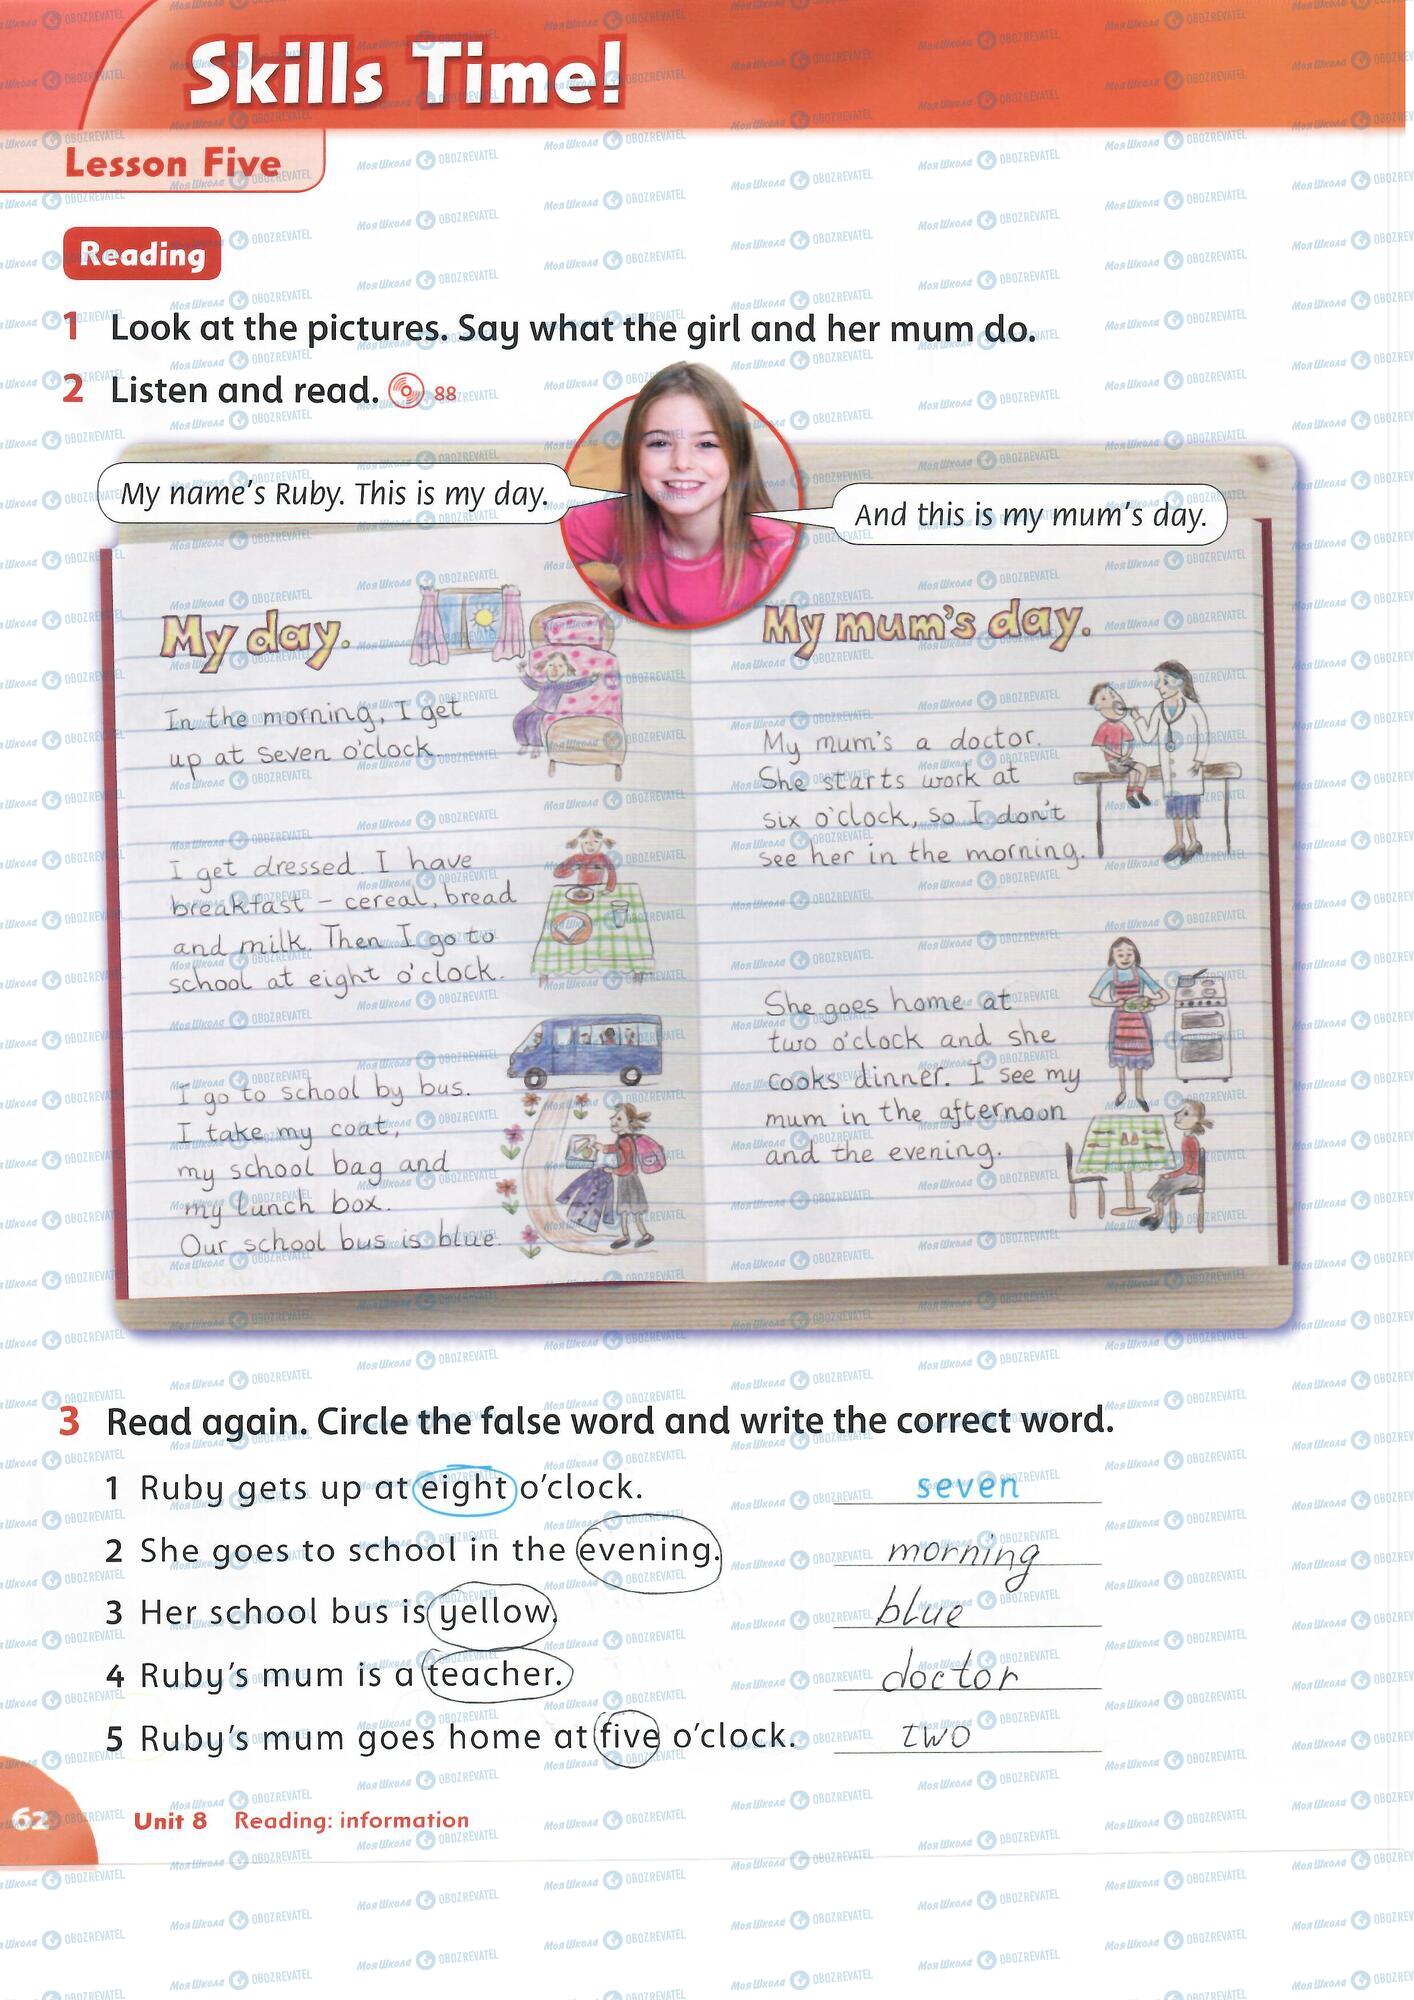 Skills Time!
Lesson Five
Reading
1 Look at the pictures. Say what the girl and her mum do.
2 Listen and read. 88
My name's Ruby. This is my day.
And this is my mum's day.
My day.
In the morning, I get
up at seven o'clock.
I get dressed. I have
breakfast – cereal, bread
and milk. Then I go to
school at eight o'clock.
I go to school by bus.
I take my coat,
my school bag and
my lunch box.
Our school bus is blue.
My mum's day.
My mum's a doctor.
She starts work at
six o'clock, so I don't
see her in the morning.
She goes home at
two o'clock and she
cooks dinner. I see my
mum in the afternoon
and the evening.
3 Read again. Circle the false word and write the correct word.
1 Ruby gets up at eight o'clock. seven
2 She goes to school in the evening. morning
3 Her school bus is yellow. blue
4 Ruby's mum is a teacher. doctor
5 Ruby's mum goes home at five o'clock. two
62 Unit 8 Reading: information
МояШкола OBOZREVATEL